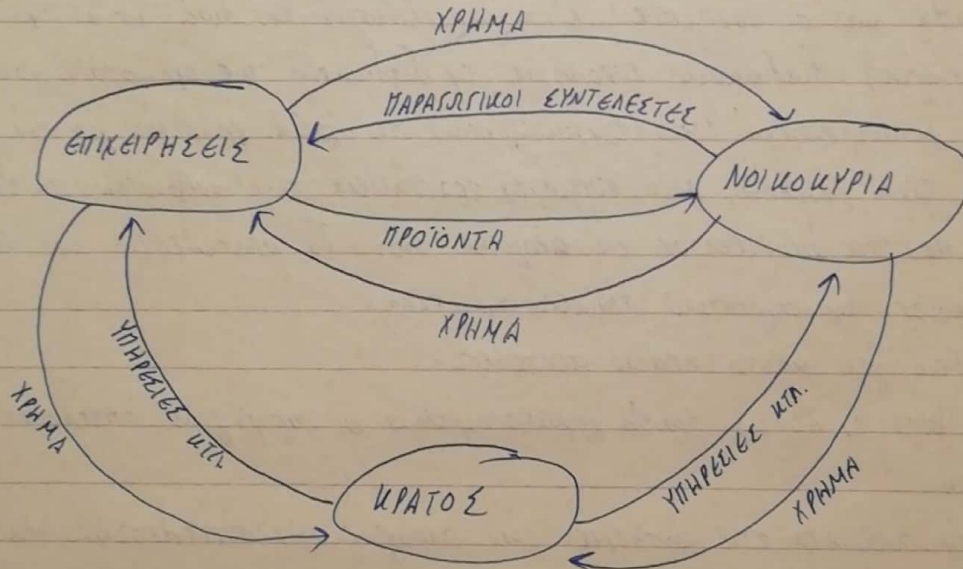 ΧΡΗΜΑ
ΠΑΡΑΓΩΓΙΚΟΙ ΣΥΝΤΕΛΕΣΤΕΣ
ΕΠΙΧΕΙΡΗΣΕΙΣ
ΝΟΙΚΟΚΥΡΙΑ
ΠΡΟΪΟΝΤΑ
ΧΡΗΜΑ
ΥΠΗΡΕΣΙΕΣ ΚΤΛ.
ΧΡΗΜΑ
ΥΠΗΡΕΣΙΕΣ ΚΤΛ.
ΧΡΗΜΑ
ΚΡΑΤΟΣ